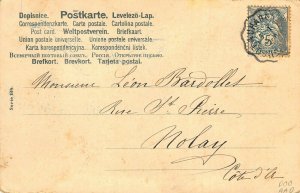 Dopisnice. Postkarte. Levelezö-Lap.
Correspondenzkarte. Carte postale. Cartolina postale.
Post card. Weltpostverein. Briefkaart.
Union postale universelle. Unione postale universale.
Karta korespondencyjna. Korespondenční lístek.
Всемірный почтовый союзъ. Россія. Открытое письмо.
Brefkort. Brevkort. Tarjeta postal.
Monsieur Léon Bardollet
Rue St Pierre
Nolay
Côte d'Or